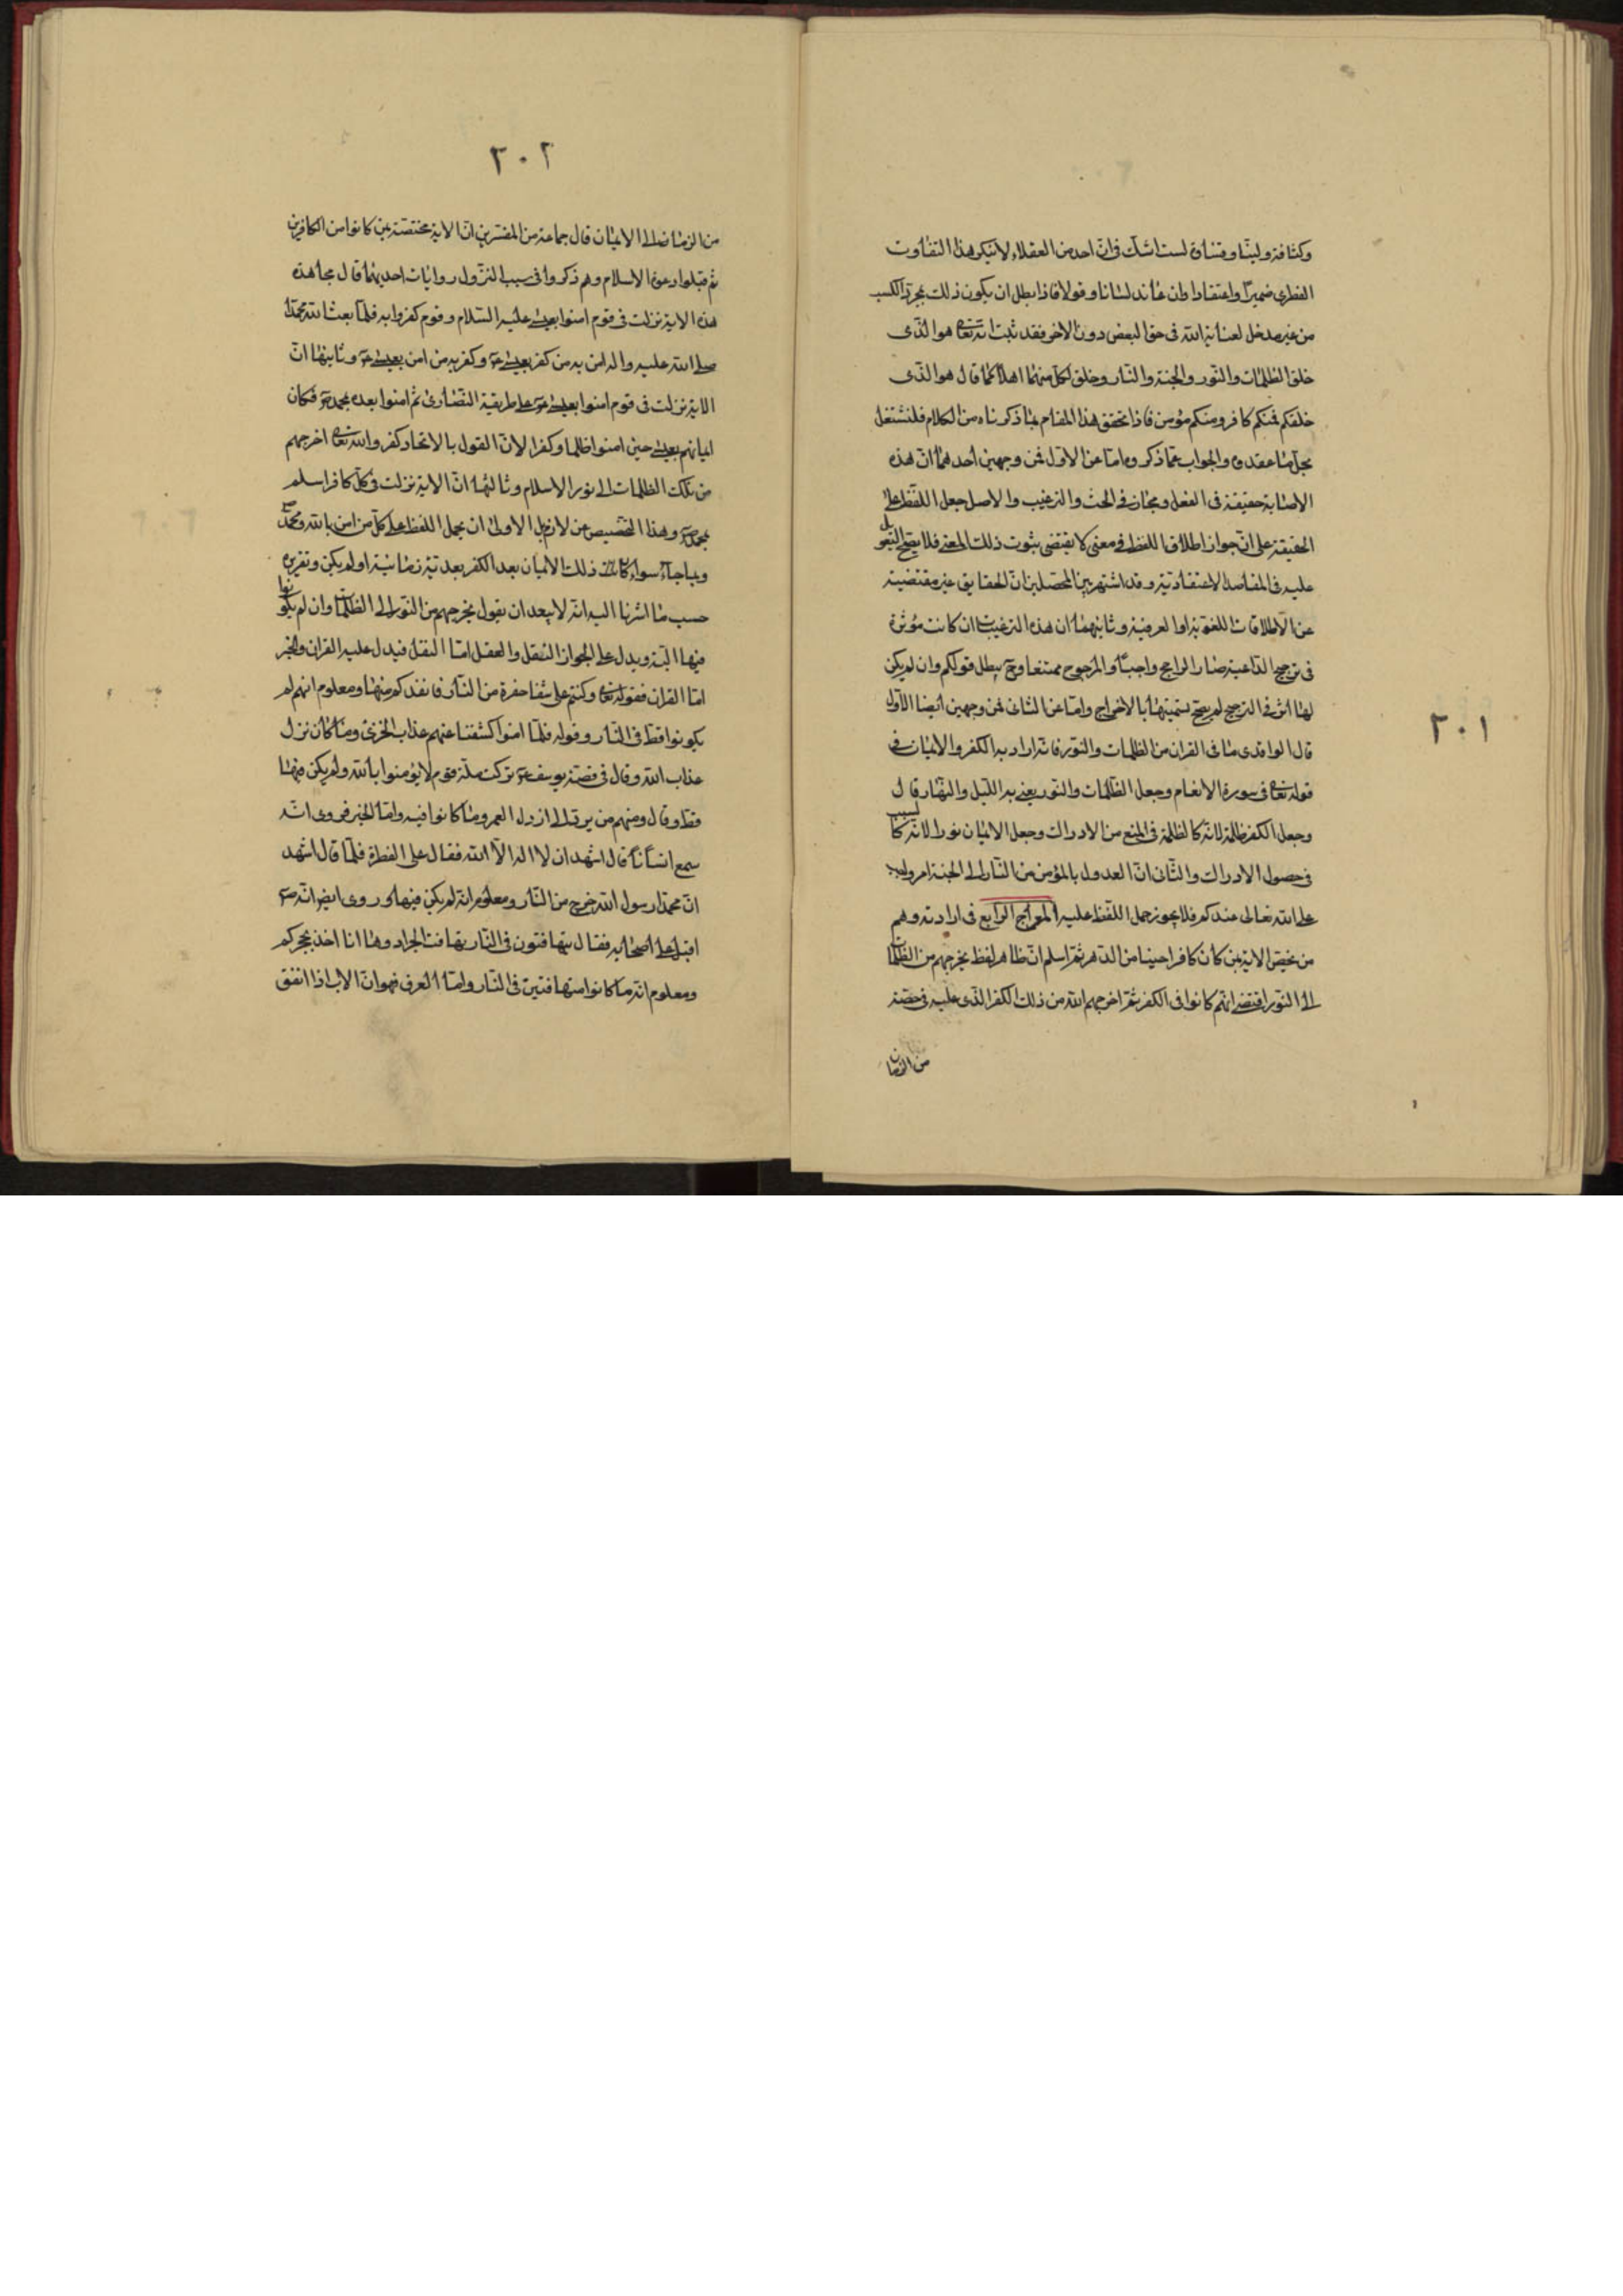 وكثافة ولينا وقساوة لست اشك فى انّ احد من العقلاء لا ينكر هذا التفاوت
الفطرى ضميرا واعتقادا وان عاند لسانا وقولا فاذا بطل ان يكون ذلك بمجرّد الكسب
من غير مدخل لعناية الله فى حق البعض دون الاخر فقد ثبت انه تعا هو الّذى
خلق الظلمات والنّور والجنة والنّار وخلق لكل منهما اهلا كما قال هو الّذى
خلقكم فمنكم كافر ومنكم مؤمن فاذا تحقق هذا المقام بما ذكرناه من الكلام فلنشتغل
بحل ما عقدوه والجواب عمّا ذكروه امّا عن الاوّل فمن وجهين أحدهما انّ هذه
الاصابة حقيقة فى الفعل ومجاز فى الحث والترغيب والاصل حمل اللّفظ على
الحقيقة على انّ جواز اطلاق اللفظ فى معنى لا يقتضى ثبوت ذلك المعنى فلا يصحّ التعويل
عليه فى المقاصد الاعتقاديّة وقد اشتهر بين المحصّلين انّ الحقايق غير مقتضية
عن الاطلاقات اللغويّة او العرفية وثانيهما ان هذه الترغيبات ان كانت مؤثرة
فى ترجيح الدّاعية صار الراجح واجبا والمرجوح ممتنعا وح يبطل قولكم وان لم يكن
لها اثر فى الترجيح لم يصحّ تسميتها بالاخراج وامّا عن الثانى فمن وجهين أيضا الاوّل
٢٠١
قال الواقدى ما فى القران من الظلمات والنّور فانه اراد به الكفر والايمان فى
قوله تعا فى سورة الانعام وجعل الظّلمات والنّور يعنى به اللّيل والنّهار قال
وجعل الكفر ظلمة لانّه كالظلمة فى المنع من الادراك وجعل الايمان نورا لانّه كالسبب
فى حصول الادراك والثّانى انّ العدول بالمؤمن من النّار الى الجنة امر واجب
على الله تعالى عندكم فلا يجوز حمل اللّفظ عليه المعراج الرّابع فى ارادته وهم
من تخيّص الاية بمن كان كافرا حينا من الدّهر ثمّ اسلم انّ ظاهر لفظ يخرجهم من الظّلمات
الى النّور اقتضى انّهم كانوا فى الكفر ثمّ اخرجهم الله من ذلك الكفر الّذى عليه فى حصّة
من الزمان
٢٠٢
من الزمان الى الايمان قال جماعة من المفسّرين انّ الاية مختصّة بمن كانوا من الكافرين
ثم قبلوا دعوة الاسلام وهم ذكروا فى سبب النّزول روايات احديها قال مجاهد
هذه الاية نزلت فى قوم امنوا بعيسى عليه السّلام وقوم كفروا به فلمّا بعث الله محمّدا
صلى الله عليه واله امن به من كفر بعيسى ع وكفر به من امن بعيسى ع وثانيها انّ
الاية نزلت فى قوم امنوا بعيسى ع على طريقة النّصارى ثم امنوا بعده بمحمد ص فكان
ايمانهم بعيسى حين امنوا ظلما وكفرا لانّ القول بالاتحاد كفر والله تعا اخرجهم
من تلك الظلمات الى نور الاسلام وثالثها انّ الاية نزلت فى كلّ كافر اسلم
بمحمد ص وهذا التخصيص غير لازم بل الاولى ان يحمل اللفظ على كلّ من امن بالله ومحمّد ص
وبما جاء سواء كانت ذلك الايمان بعد الكفر بعديّة زمانية او لم يكن وتقريره
حسب ما اشرنا اليه انّه لا يبعد ان يقول يخرجهم من النّور الى الظلمات وان لم يكونوا
فيها البتّة ويدل على الجواز النّقل والعقل امّا النقل فيدل عليه القران والخبر
امّا القران فقوله تعا وكنتم على شفا حفرة من النّار فانقذكم منها ومعلوم انهم لم
يكونوا قط فى النّار وقوله فلمّا امنوا كشفنا عنهم عذاب الخزى وما كان نزل
عذاب الله وقال فى قصّة يوسف ع تركت ملّة قوم لا يؤمنون بالله ولم يكن فيها
قط وقال ومنهم من يردّ الى ارذل العمر وما كانوا فيه وامّا الخبر فروى انّه
سمع انسانا قال اشهد ان لا اله الاّ الله فقال على الفطرة فلمّا قال اشهد
انّ محمّدا رسول الله خرج من النّار ومعلوم انّه لم يكن فيها وروى ايض انّه ص
اقبل على اصحابه فقال تتهافتون فى النّار تهافت الجراد وها انا اخذ بحجزكم
ومعلوم انّه ما كانوا متهافتين فى النّار وامّا العرف فهو انّ الاب اذا انفق